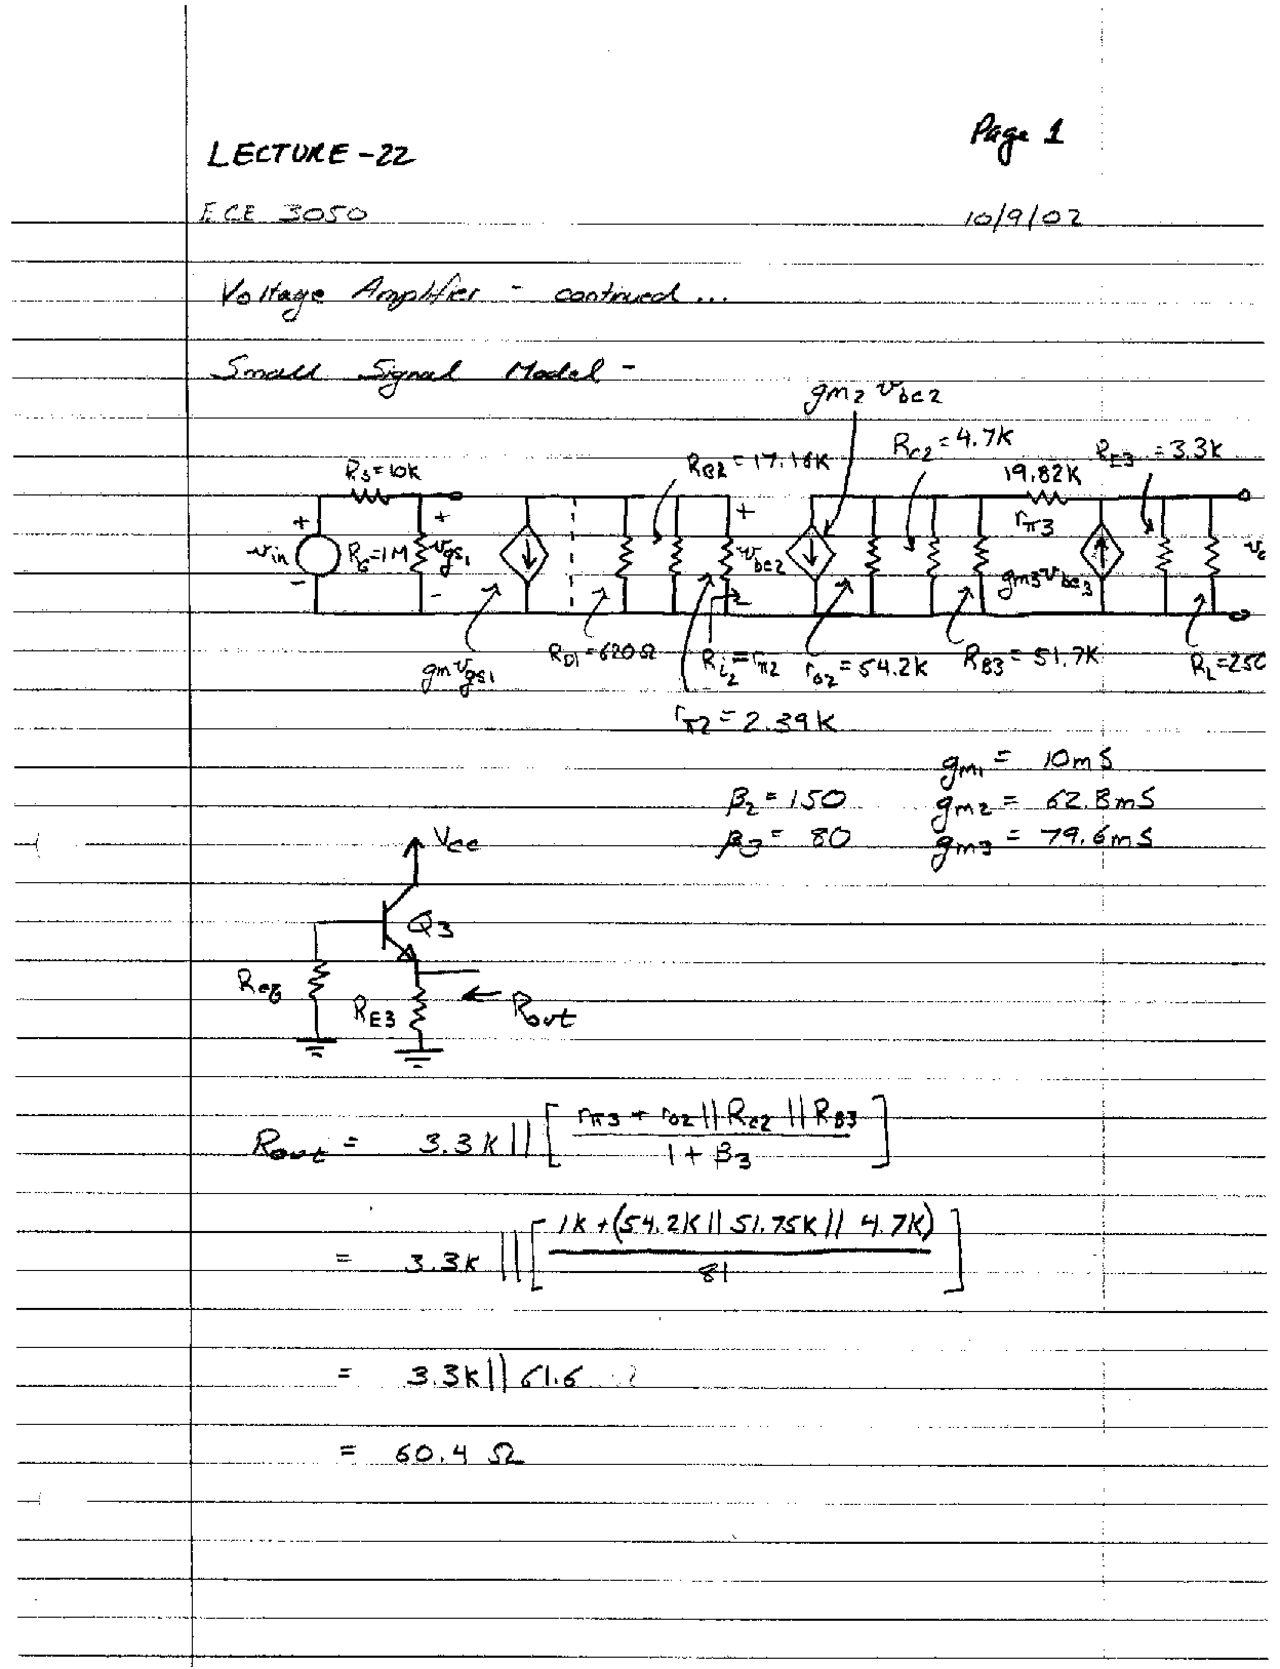 Page 1
LECTURE-22
ECE 3050 10/9/02
Voltage Amplifier - continued...
Small Signal Model -
gm2 vbe2
RS=10K RB2=17.16K RC2=4.7K 19.82K RE3=3.3K
+ + + rπ3
vin RG=1M vgs1 vbe2 gm3vbe3
- -
gmvgs1 RD1=620Ω Ri2=rπ2 ro2=54.2K RB3=51.7K RL=250
rπ2=2.39K
gm1 = 10mS
β2=150 gm2 = 62.8mS
β3= 80 gm3 = 79.6mS
Vcc
Q3
Req RE3 Rout
Rout = 3.3K||[(rπ3 + ro2||RC2||RB3) / (1+β3)]
= 3.3K||[(1K+(54.2K||51.75K||4.7K)) / 81]
= 3.3K||61.6 Ω
= 60.4 Ω